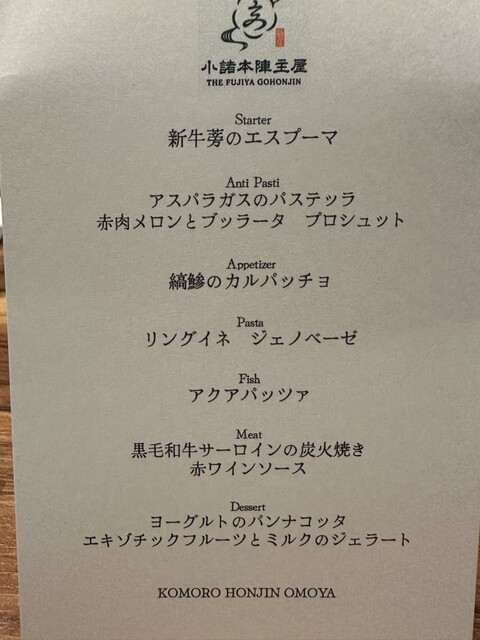 小諸本陣主屋
THE FUJIYA GOHONJIN
Starter
新牛蒡のエスプーマ
Anti Pasti
アスパラガスのパステッラ
赤肉メロンとブッラータ　プロシュット
Appetizer
縞鯵のカルパッチョ
Pasta
リングイネ　ジェノベーゼ
Fish
アクアパッツァ
Meat
黒毛和牛サーロインの炭火焼き
赤ワインソース
Dessert
ヨーグルトのパンナコッタ
エキゾチックフルーツとミルクのジェラート
KOMORO HONJIN OMOYA